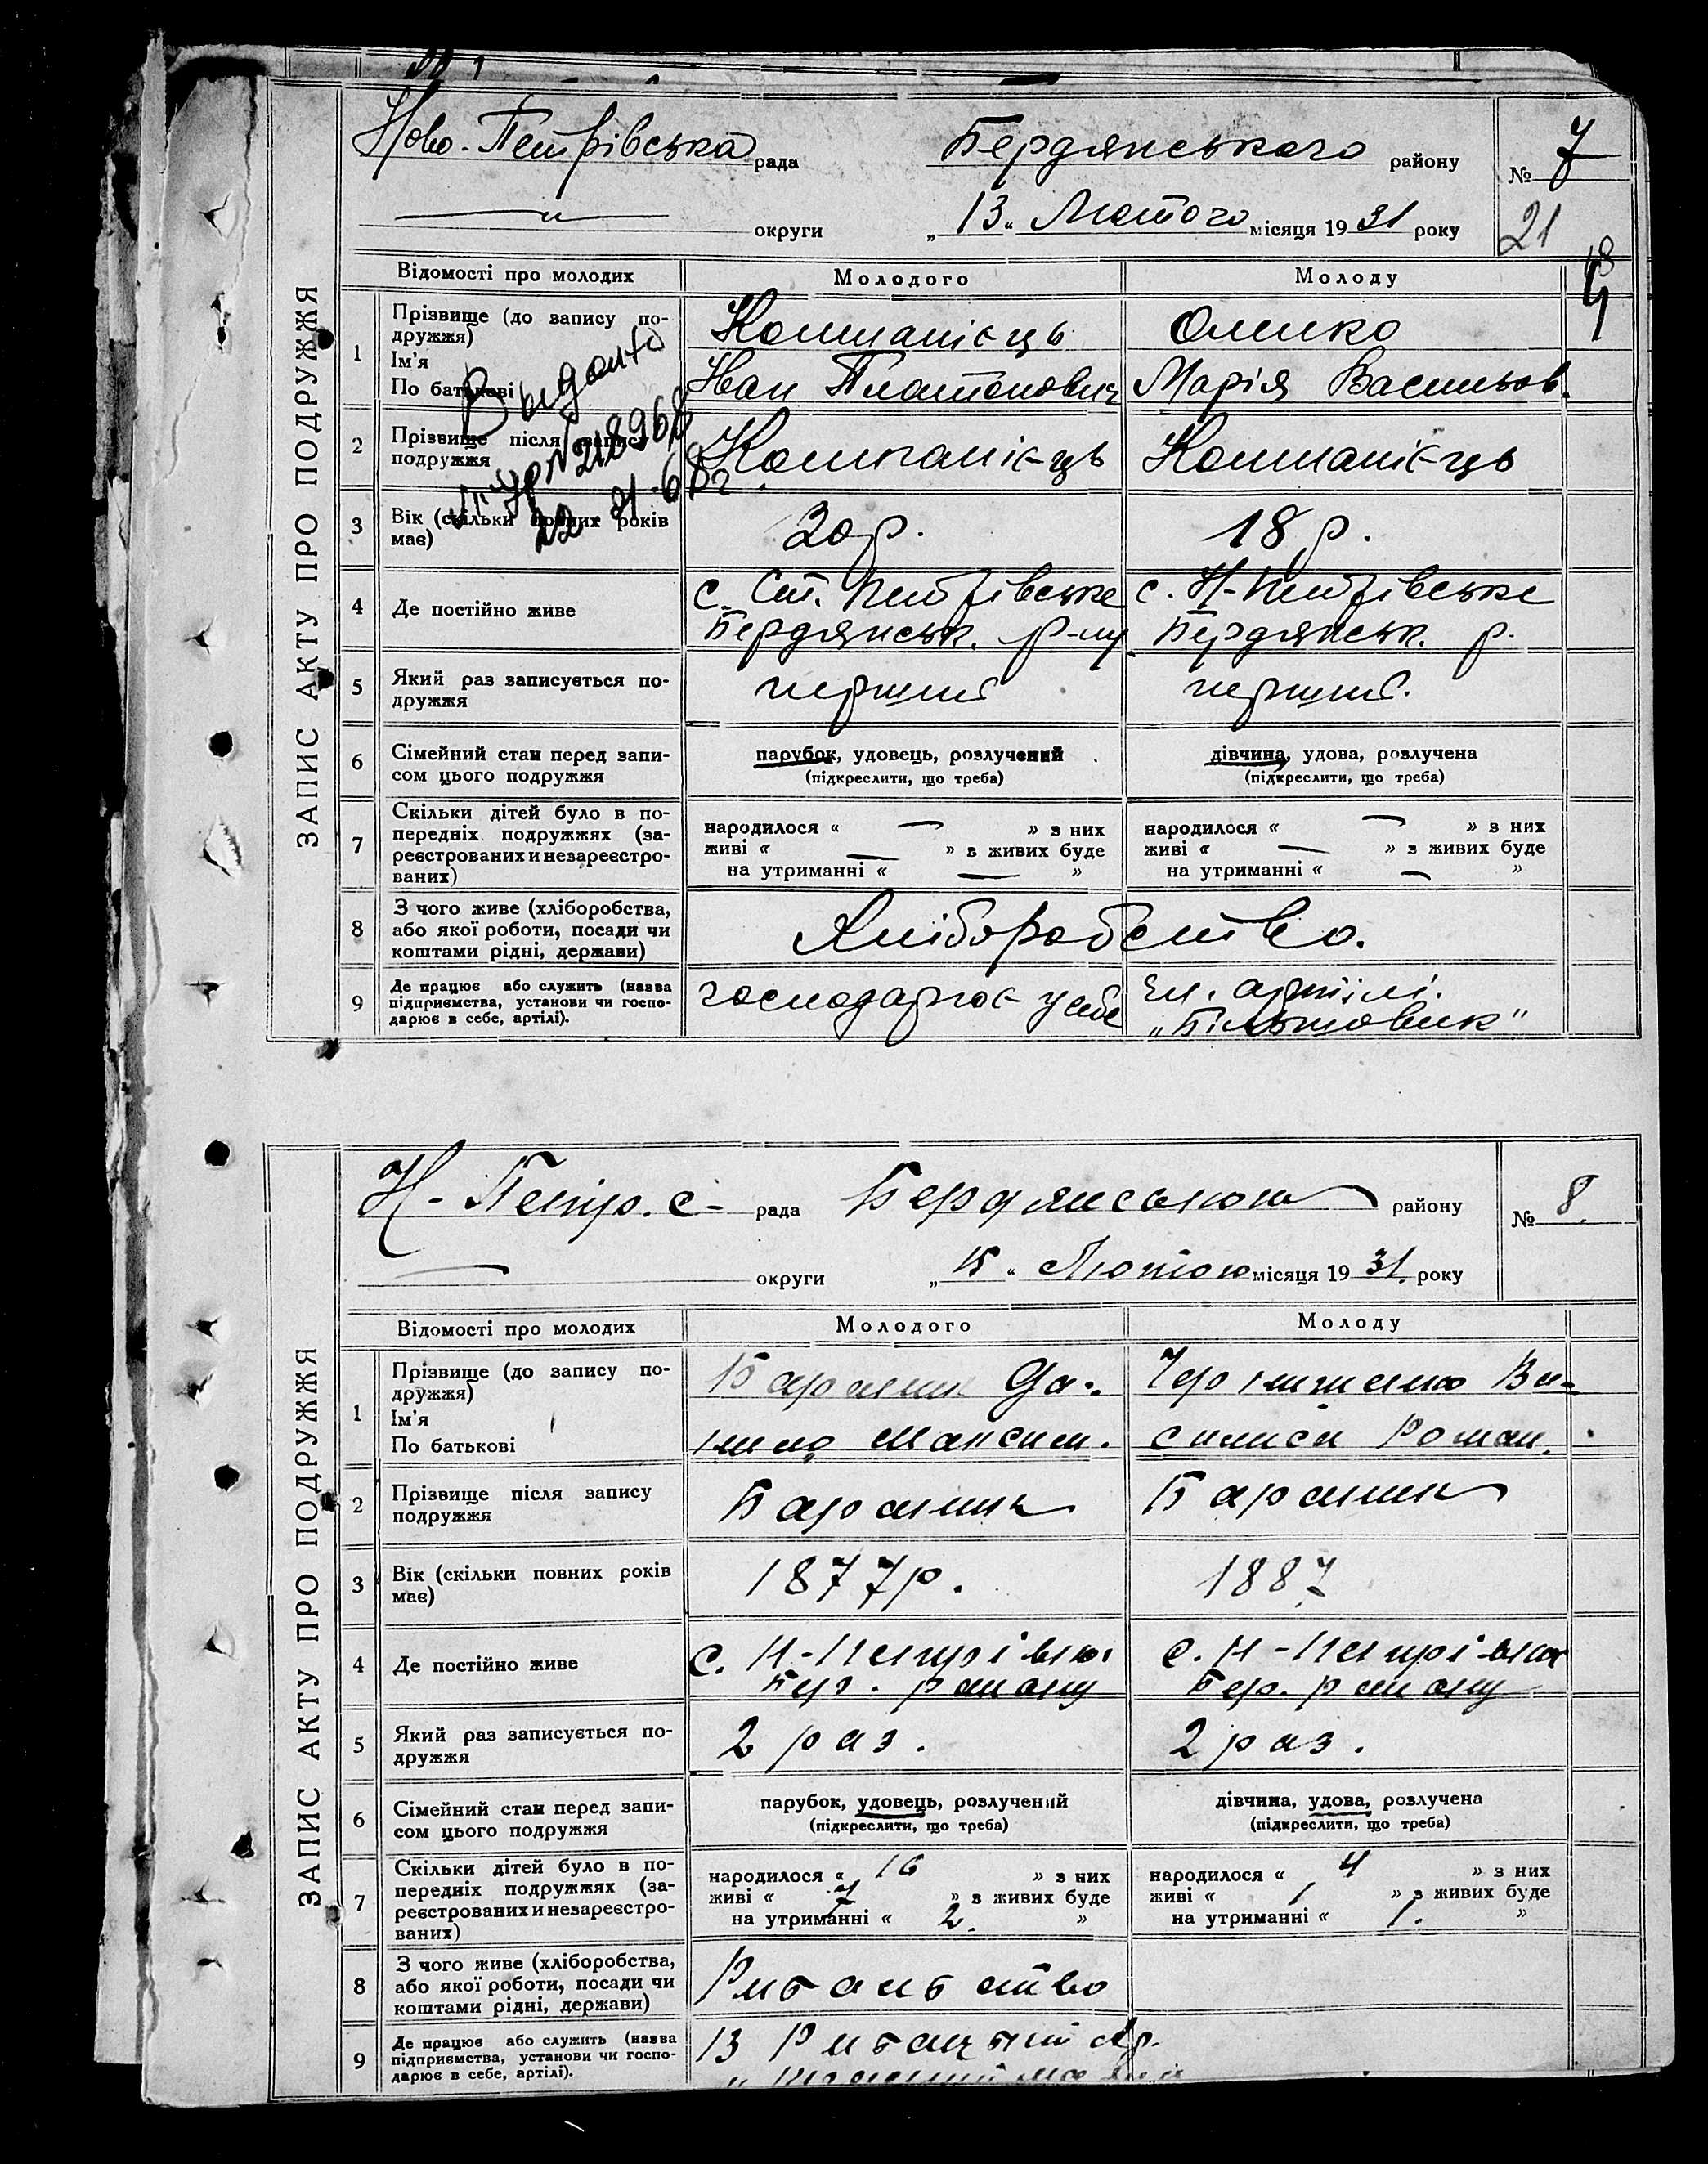 Ново-Петрівська рада Бердянського району № 7
округи „13“ Лютого місяця 1931 року
21
ЗАПИС АКТУ ПРО ПОДРУЖЖЯ
Відомості про молодих Молодого Молоду
1 Прізвище (до запису по-
дружжя)
Ім'я
По батькові
Компанієць
Іван Платонович
Оленко
Марія Васильов.
2 Прізвище після запису
подружжя
Компанієць Компанієць
Выдано
№ 218968
3 Вік (скільки повних років
має)
20 р. 18 р.
4 Де постійно живе
с. Ст. Петрівське
Бердянськ. р-ну
с. Н-Петрівське
Бердянськ. р.
5 Який раз записується по-
дружжя
перший перший.
6 Сімейний стан перед запи-
сом цього подружжя
парубок, удовець, розлучений
(підкреслити, що треба)
дівчина, удова, розлучена
(підкреслити, що треба)
7 Скільки дітей було в по-
передніх подружжях (за-
реєстрованих и незареєстро-
ваних)
народилося « — » з них
живі « — » з живих буде
на утриманні « — »
народилося « — » з них
живі « — » з живих буде
на утриманні « — »
8 З чого живе (хліборобства,
або якої роботи, посади чи
коштами рідні, держави)
Хліборобство.
9 Де працює або служить (назва
підприємства, установи чи госпо-
дарює в себе, артілі).
господарює у себе
чл. артілі.
„Більшовик“
Н-Петр. с- рада Бердянського району № 8.
округи „15“ Лютого місяця 1931. року
ЗАПИС АКТУ ПРО ПОДРУЖЖЯ
Відомості про молодих Молодого Молоду
1 Прізвище (до запису по-
дружжя)
Ім'я
По батькові
Бараник Да-
нило Максим.
Ва-
силиса Роман.
2 Прізвище після запису
подружжя
Бараник Бараник
3 Вік (скільки повних років
має)
1877 р. 1887
4 Де постійно живе
с. Н-Петрівка
Бер. району
с. Н-Петрівка
Бер. району
5 Який раз записується по-
дружжя
2 раз. 2 раз.
6 Сімейний стан перед запи-
сом цього подружжя
парубок, удовець, розлучений
(підкреслити, що треба)
дівчина, удова, розлучена
(підкреслити, що треба)
7 Скільки дітей було в по-
передніх подружжях (за-
реєстрованих и незареєстро-
ваних)
народилося « 16 » з них
живі « 7 » з живих буде
на утриманні « 2. »
народилося « 4 » з них
живі « 1 » з живих буде
на утриманні « 1. »
8 З чого живе (хліборобства,
або якої роботи, посади чи
коштами рідні, держави)
Рибальство
9 Де працює або служить (назва
підприємства, установи чи госпо-
дарює в себе, артілі).
В Рибачтій Ар.